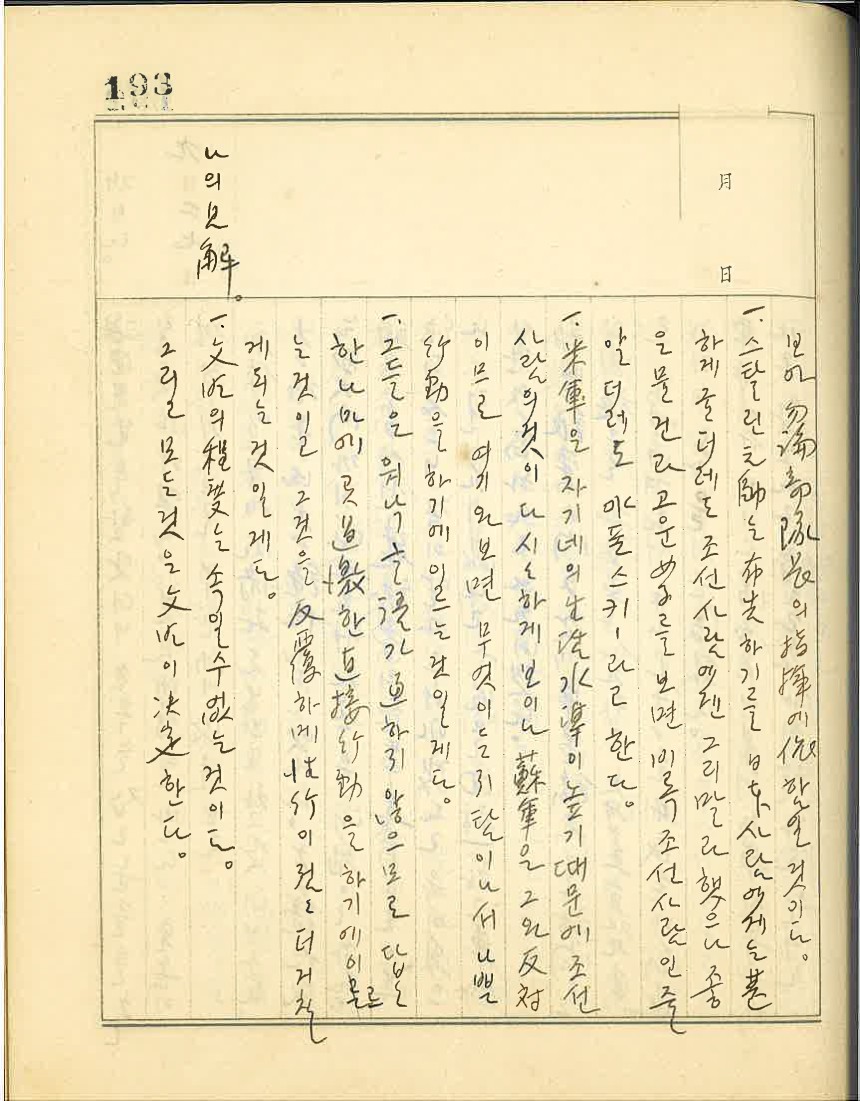 193
月
日
보아 勿論 部隊長의 指揮에 依함일 것이다。
一. 스탈린 元帥는 布告하기를 日本사람에게는 甚
하게 굴더레도 조선사람에겐 그리말라 했으나 좋
은물건과 고운 女子를 보면 비록 조선사람인줄
알더레도 야폰스키ー라고 한다。
一. 米軍은 자기네의 生活水準이 높기때문에 조선
사람의것이 다 시시하게 보이나 蘇軍은 그와 反対
이므로 여기와보면 무엇이든지 탐이나서 나쁜
行動을 하기에 이르는것일게다。
一. 그들은 워낙 言語가 通하지 않으므로 답답
한나마에 곳 過激한 直接行動을 하기에 이르
는 것이고 그것을 反覆하매 性行이 점점 더 거칠
게되는 것일게다。
나의 見解。
一. 文明의 程度는 속일수 없는것이다。
그리고 모든것은 文明이 決定한다。